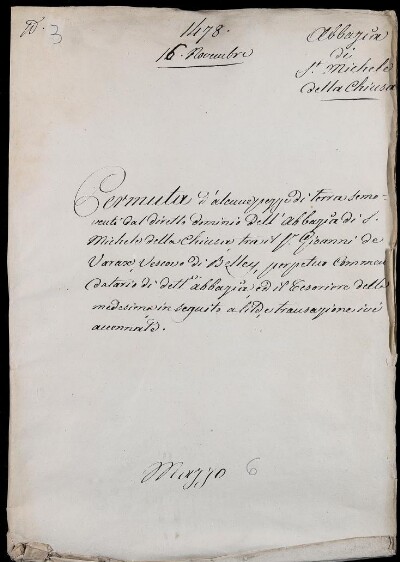 N.° 3
1478.
16. Novembre
Abbazia
di
S.t Michele
della Chiusa
Permuta d'alcune pezze di terra semo=
venti dal diretto dominio dell'Abbazia di S.
Michele della Chiusa, tra il S.r Gioanni de
Varax, Vescovo di Belley, perpetuo commen
datario di dett'abbazia, ed il Tesoriere della
medesima in seguito a lite, e transazione ivi
accennate.
Mazzo 6